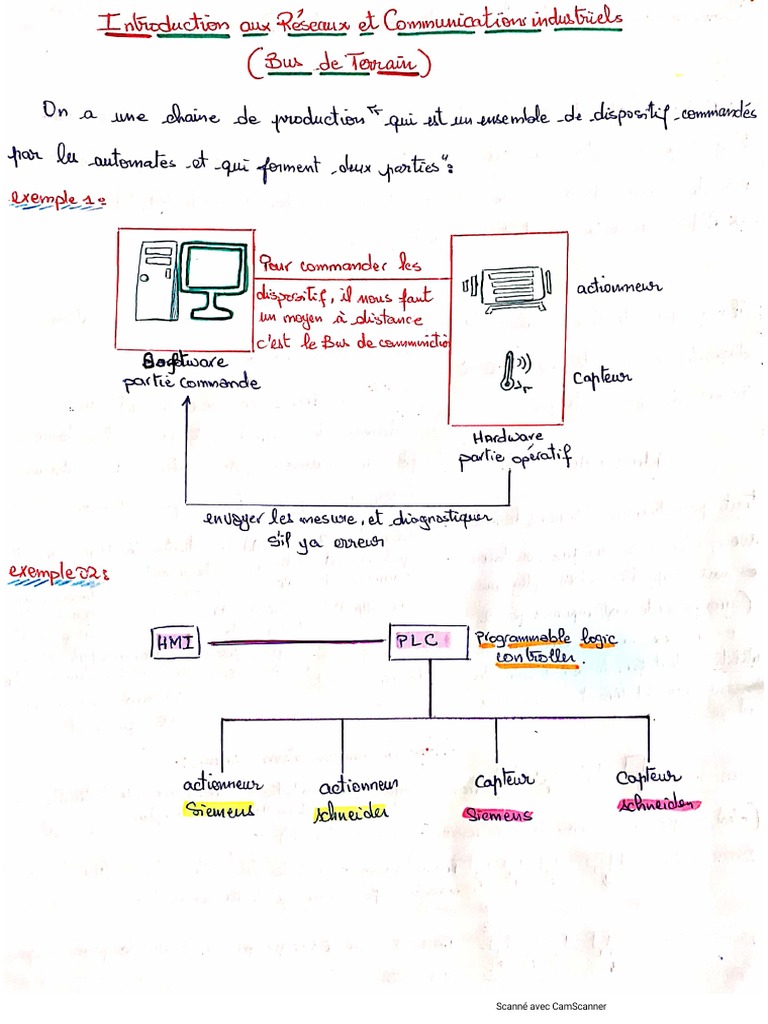 Introduction aux Réseaux et Communications industriels
(Bus de Terrain)
On a une chaine de production " qui est un ensemble de dispositif commandés
par les automates et qui forment deux parties":
exemple 1:
Pour commander les
dispositif, il nous faut
un moyen à distance
c'est le Bus de communictio
actionneur
capteur
partie commande
Hardware
partie opératif
envoyer les mesure, et diagnostiquer
s'il ya erreur
exemple 02:
HMI
PLC
Programmable logic
controller.
actionneur
Siemens
actionneur
schneider
capteur
Siemens
capteur
schneider
Scanné avec CamScanner